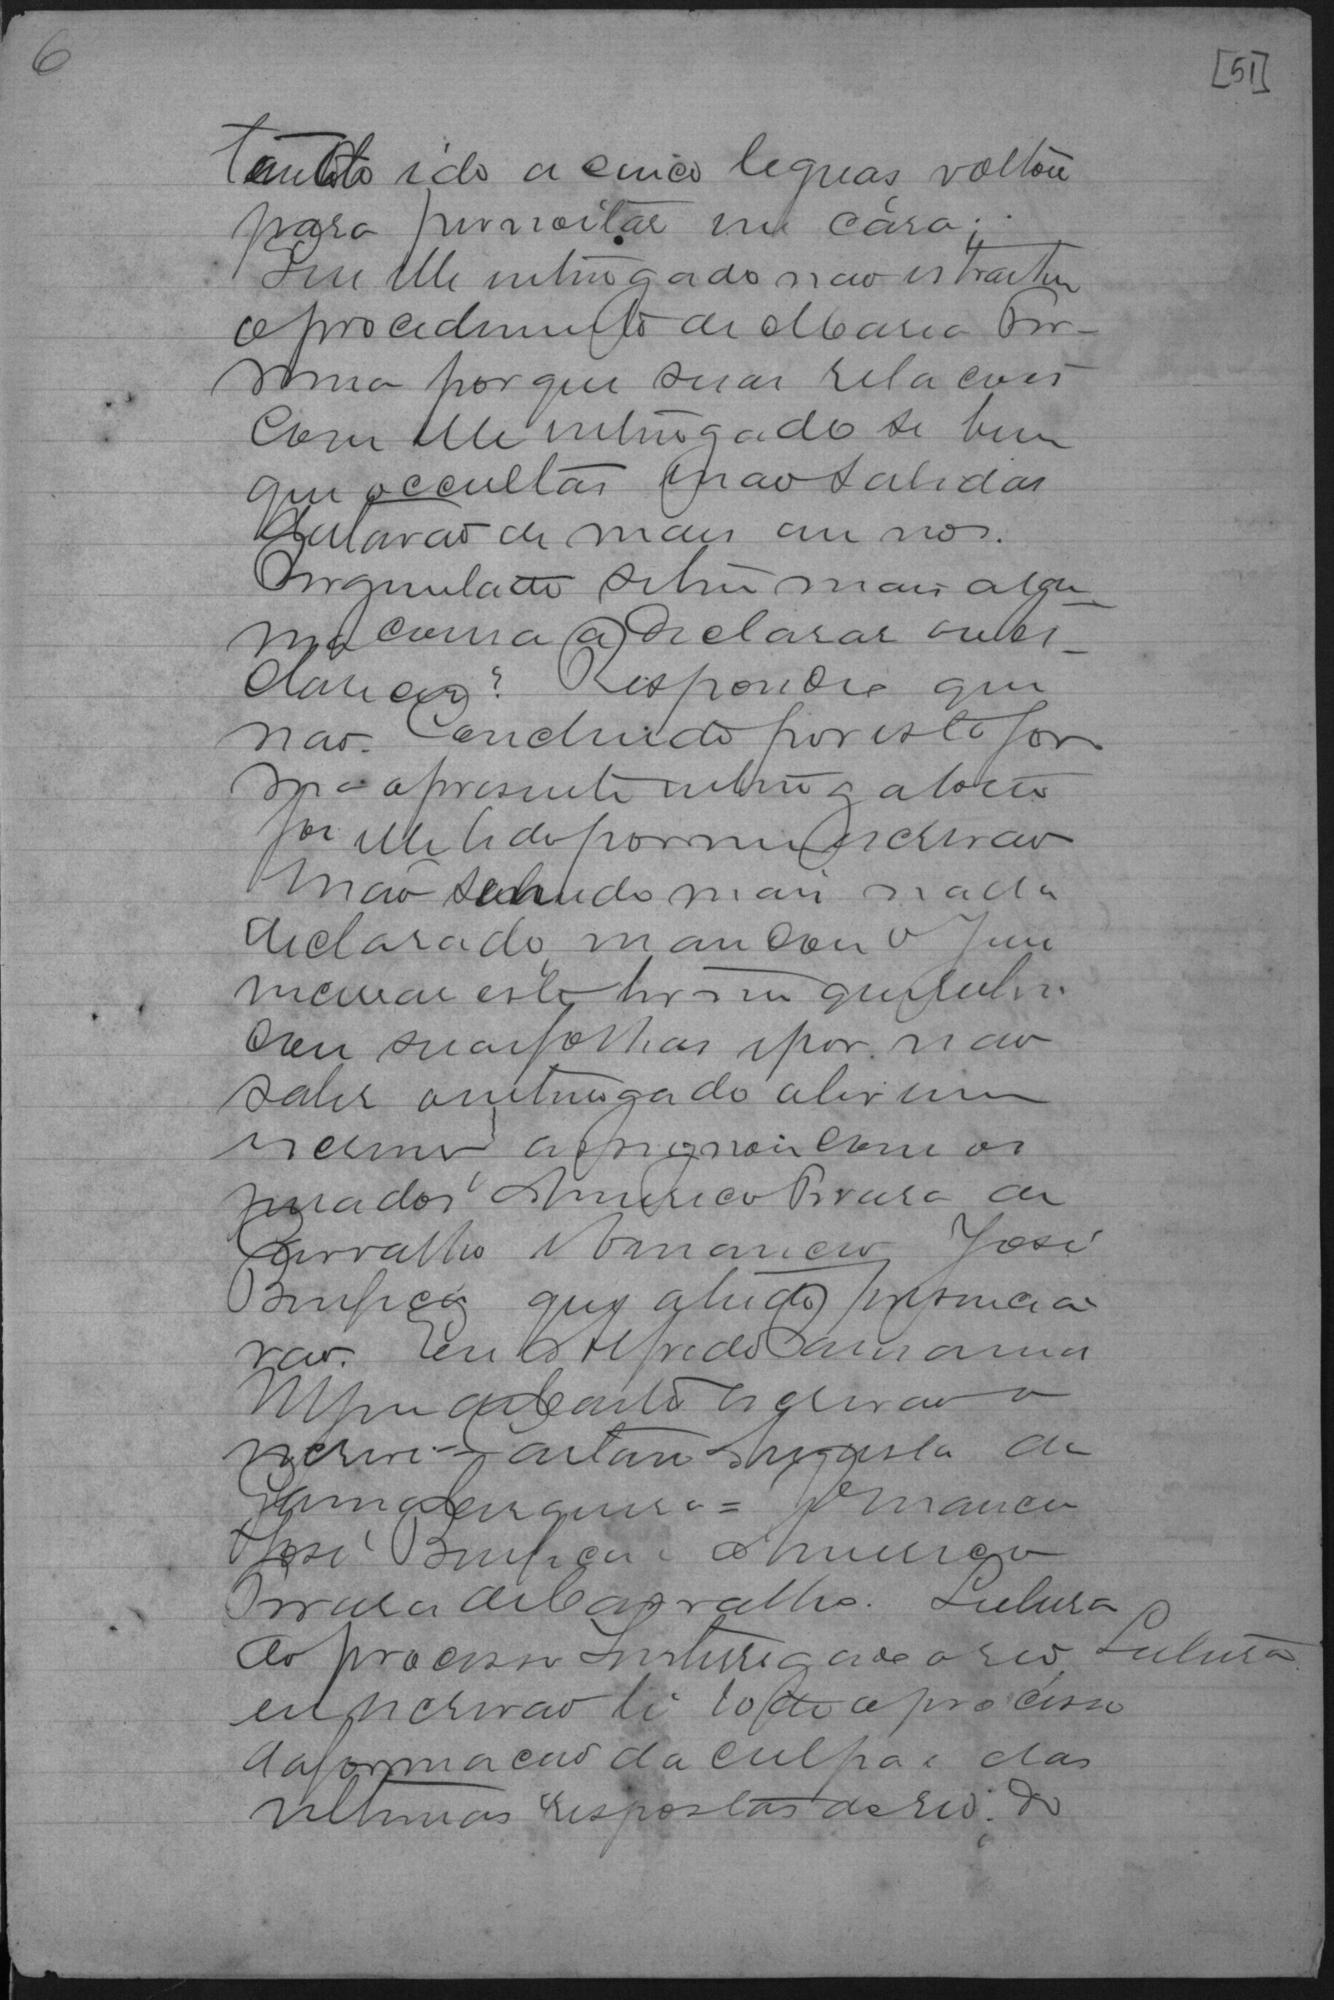 6
[51]
tendo ido a cinco leguas voltou
para pernoitar em cása;
que elle interrogado não estranhou
o procedimento de Maria Fir-
mina porque suas relacoes
com elle interrogado se bem
que occultas e não sabidas
datavão de mais annos.
Perguntado se tem mais algu-
ma cousa a declarar ou es-
clarecer? Respondeo que
não. Concluido por esta for
ma o presente interrogatorio
foi elle lido por mim escrivão
e não sendo mais nada
declarado mandou o Juiz
encerrar este termo que rubri
cou suas folhas e por não
saber o interrogado ler nem
escrever assignou com os
jurados Americo Pereira de
Carvalho e Venancio José
Bemfica que a tudo presencia
rão. Eu Alfredo
de Castro escrivão o
escrevi = Caetano Augusto de
Gama Cerqueira = Venancio
José Bemfica = Americo
Pereira de Carvalho. Leitura
do processo Interrogado o reo, Leitura
eu escrivão li todo o processo
da formacão da culpa e das
ultimas respostas do reo; do